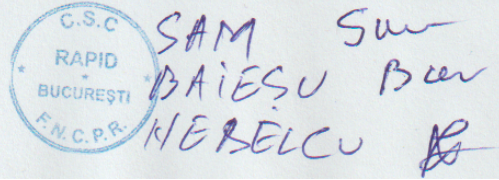 C.S.C
RAPID
BUCUREȘTI
F.N.C.P.R.
SAM
BAIEȘU
NEBELCU